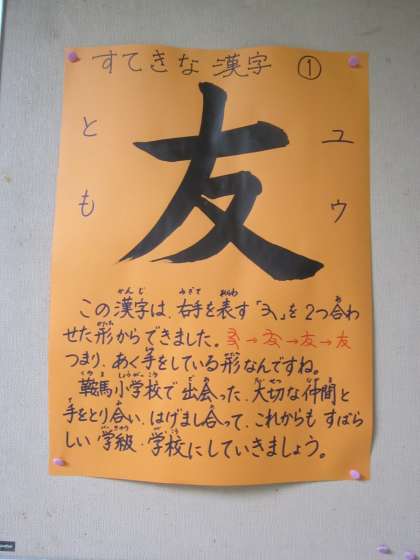 すてきな漢字 ①
友
とも
ユウ
この漢字は、右手を表す「ヨ」を2つ合わ
せた形からできました。→友→友→友
つまり、あく手をしている形なんですね。
鞍馬小学校で出会った、大切な仲間と
手をとり合い、はげまし合って、これからもすばら
しい学級・学校にしていきましょう。